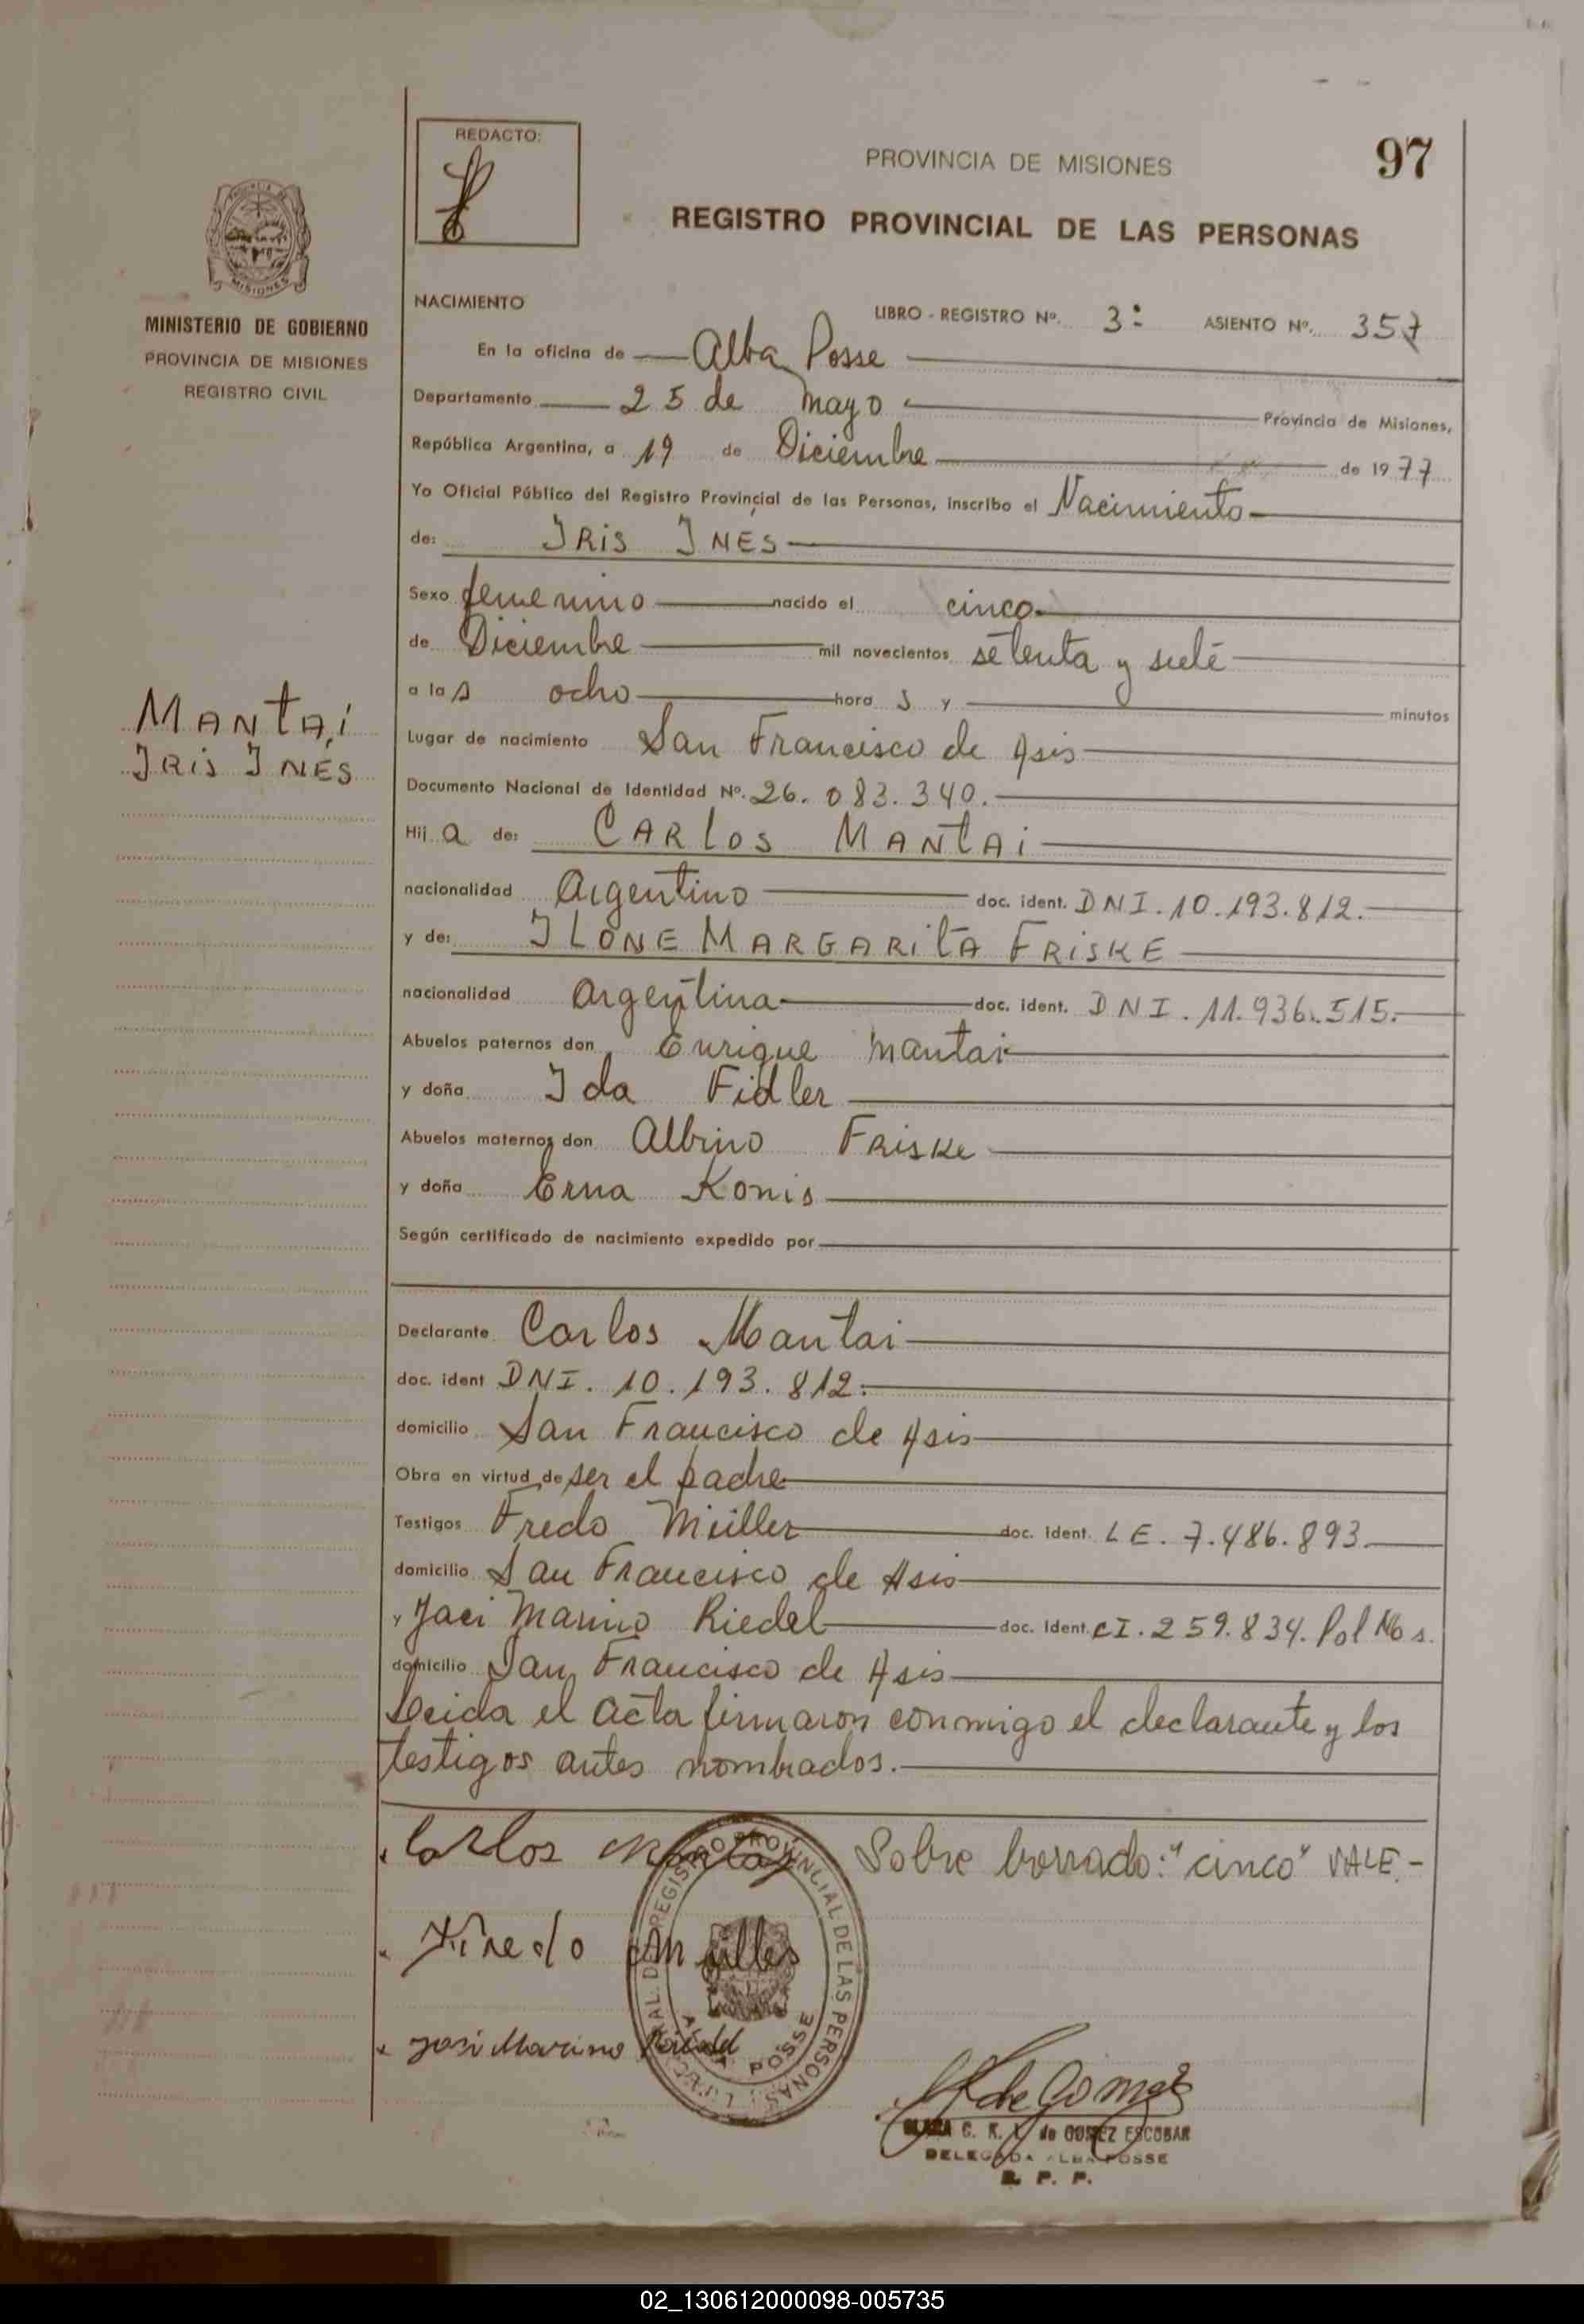 REDACTO:
PROVINCIA DE MISIONES
97
REGISTRO PROVINCIAL DE LAS PERSONAS
MINISTERIO DE GOBIERNO
PROVINCIA DE MISIONES
REGISTRO CIVIL
MANTAI
IRIS INES
NACIMIENTO
LIBRO - REGISTRO Nº. 3: ASIENTO Nº. 357
En la oficina de Alba Posse
Departamento 25 de mayo Provincia de Misiones,
República Argentina, a 19 de Diciembre de 1977
Yo Oficial Público del Registro Provincial de las Personas, inscribo el Nacimiento
de: IRIS INES
Sexo femenino nacido el cinco
de Diciembre mil novecientos setenta y siete
a las ocho horas y minutos
Lugar de nacimiento San Francisco de Asis
Documento Nacional de Identidad Nº. 26.083.340.
Hija de: CARLOS MANTAI
nacionalidad Argentino doc. ident. DNI. 10.193.812.
y de: ILONE MARGARITA FRISKE
nacionalidad argentina doc. ident. DNI. 11.936.515.
Abuelos paternos don Enrique Mantai
y doña Ida Fidler
Abuelos maternos don Albino Friske
y doña Erna Konis
Según certificado de nacimiento expedido por
Declarante Carlos Mantai
doc. ident DNI. 10.193.812.
domicilio San Francisco de Asis
Obra en virtud de ser el padre
Testigos Fredo Müller doc. Ident. LE. 7.486.893
domicilio San Francisco de Asis
y Jaci Marino Riedel doc. Ident. CI. 259.834. Pol Mos.
domicilio San Francisco de Asis
Leida el acta firmaron conmigo el declarante y los
testigos antes nombrados.
Carlos Mantay
Sobre borrado: "cinco" VALE.-
REGISTRO PROVINCIAL DE LAS PERSONAS
ALBA POSSE
de Gomez
C. K. L. de GOMEZ ESCOBAR
DELEGADA ALBA POSSE
R. P. P.
02_130612000098-005735